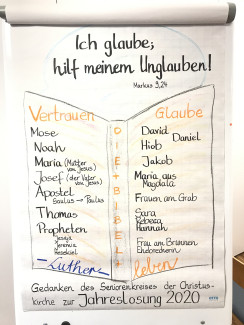 Ich glaube;
hilf meinem Unglauben!
Markus 9,24
Vertrauen
Mose
Noah
Maria (Mutter von Jesus)
Josef (der Vater von Jesus)
Apostel
Saulus → Paulus
Thomas
Propheten
Jesaja
Jeremia
Hesekiel
Luther
DIE BIBEL
Glaube
David
Daniel
Hiob
Jakob
Maria aus
Magdala
Frauen am Grab
Sara
Rebecca
Hannah
Frau am Brunnen
Ehebrecherin
leben
Gedanken des Seniorenkreises der Christus-
kirche zur Jahreslosung 2020